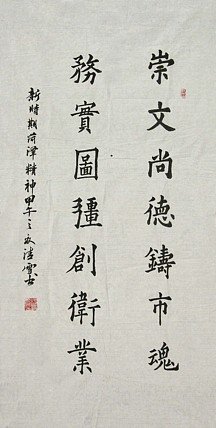 崇文尚德鑄市魂
務實圖彊創衛業
新時期菏澤精神甲午之秋清雪書